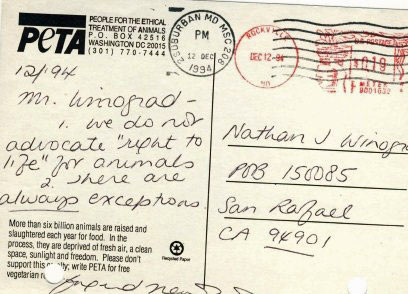 PETA
PEOPLE FOR THE ETHICAL
TREATMENT OF ANIMALS
P.O. BOX 42516
WASHINGTON DC 20015
(301) 770-7444
SUBURBAN MD MSC 208
PM
12 DEC
1994
ROCKVILLE
DEC 12-94
U.S. POSTAGE
019
METER
12/94
Mr. Winograd -
1. We do not
advocate "right to
life" for animals
2. There are
always exceptions
Nathan J Winogra
POB 150085
San Rafael
CA 94901
More than six billion animals are raised and
slaughtered each year for food. In the
process, they are deprived of fresh air, a clean
space, sunlight and freedom. Please don't
support this write PETA for free
vegetarian
Recycled Paper